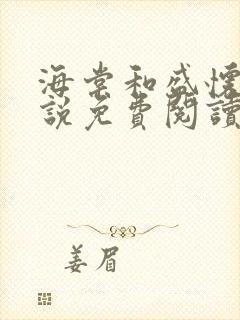 海棠和盛懷
說免費閱讀
姜眉